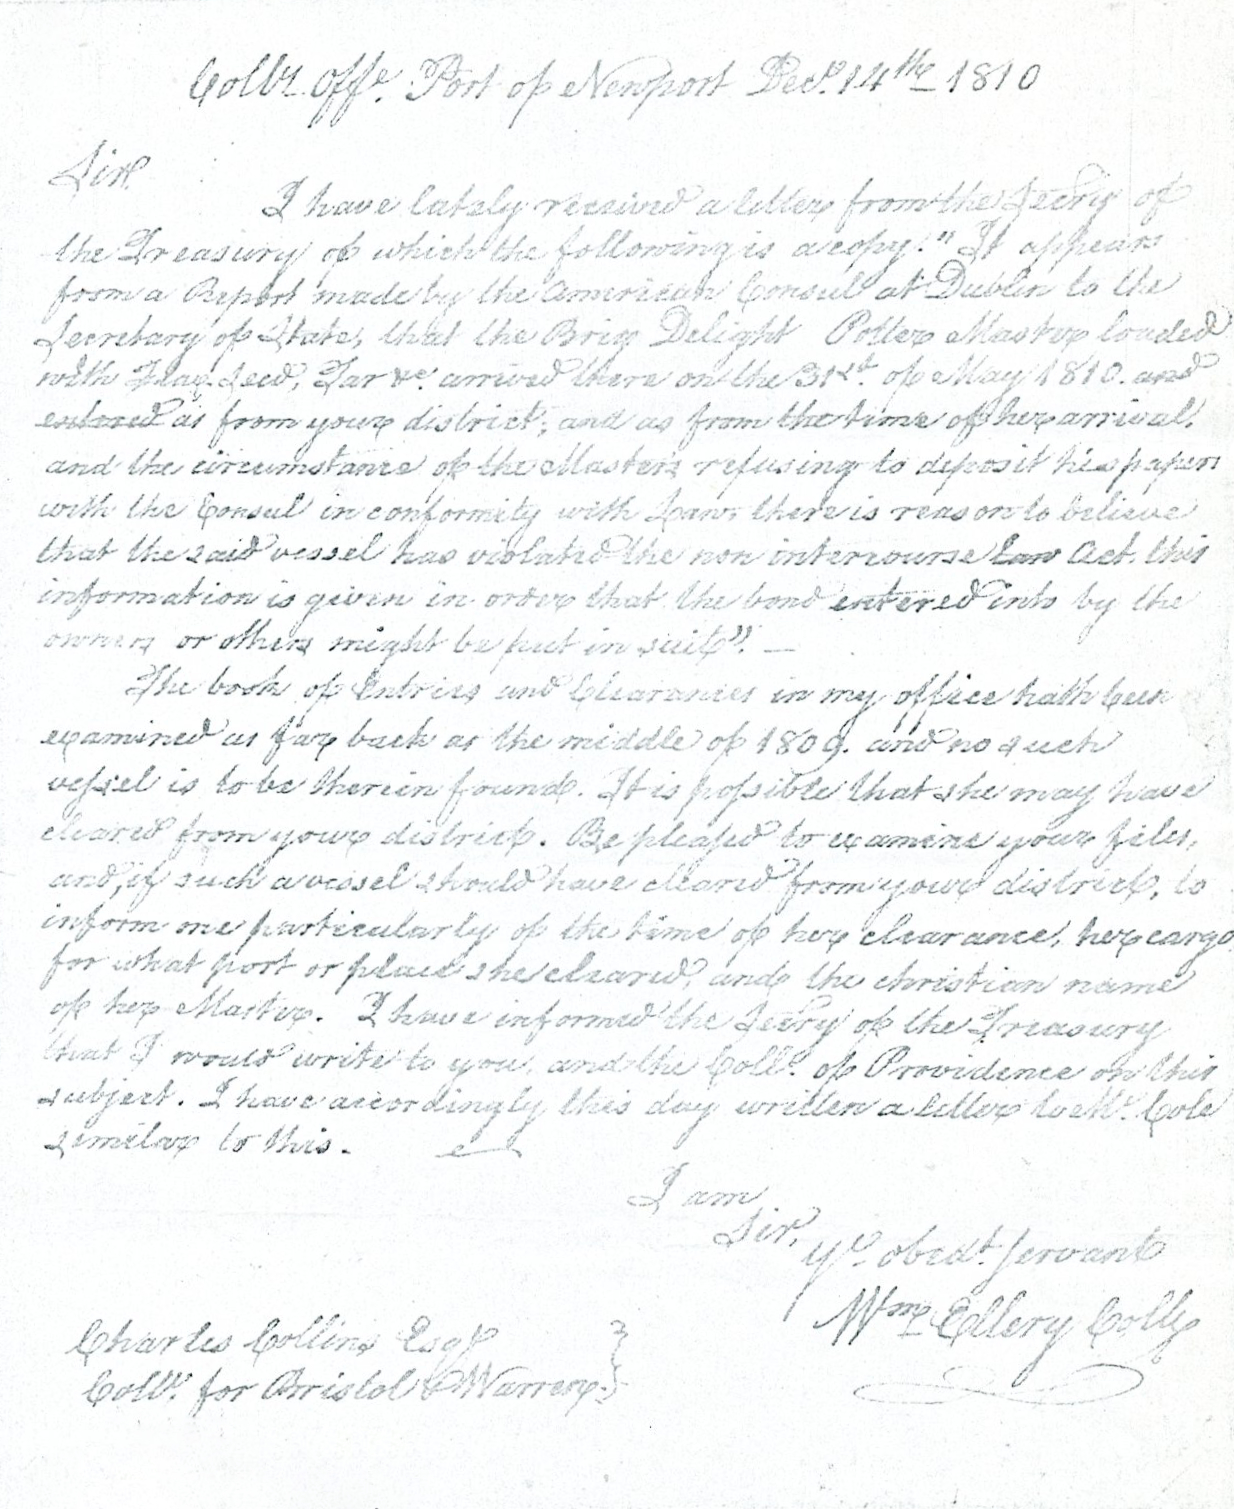 Collrs. Offe. Port of Newport Decr. 14th 1810
Sir.
I have lately received a letter from the Secry of
the Treasury of which the following is a copy. "It appears
from a Report made by the American Consul at Dublin to the
Secretary of State, that the Brig Delight Potter Master loaded
with Flax Seed, Tar &c. arrived there on the 31st. of May 1810. and
entered as from your district; and as from the time of her arrival,
and the circumstance of the Masters refusing to deposit his papers
with the Consul in conformity with Law, there is reason to believe
that the said vessel has violated the non intercourse Law Act. this
information is given in order that the bond entered into by the
owners or others might be put in suit". —
The book of Entries and Clearances in my office hath been
examined as far back as the middle of 1809. and no such
vessel is to be therein found. It is possible that she may have
cleared from your district. Be pleased to examine your files,
and, if such a vessel should have cleared from your district, to
inform me particularly of the time of her clearance, her cargo
for what port or place she cleared, and the christian name
of her Master. I have informed the Secry of the Treasury
that I would write to you, and the Collr. of Providence on this
subject. I have accordingly this day written a letter to Mr. Cole
similar to this.
I am
Sir,
Yr. obedt. servant
Wm Ellery Collr
Charles Collins Esqr
Collr. for Bristol & Warren